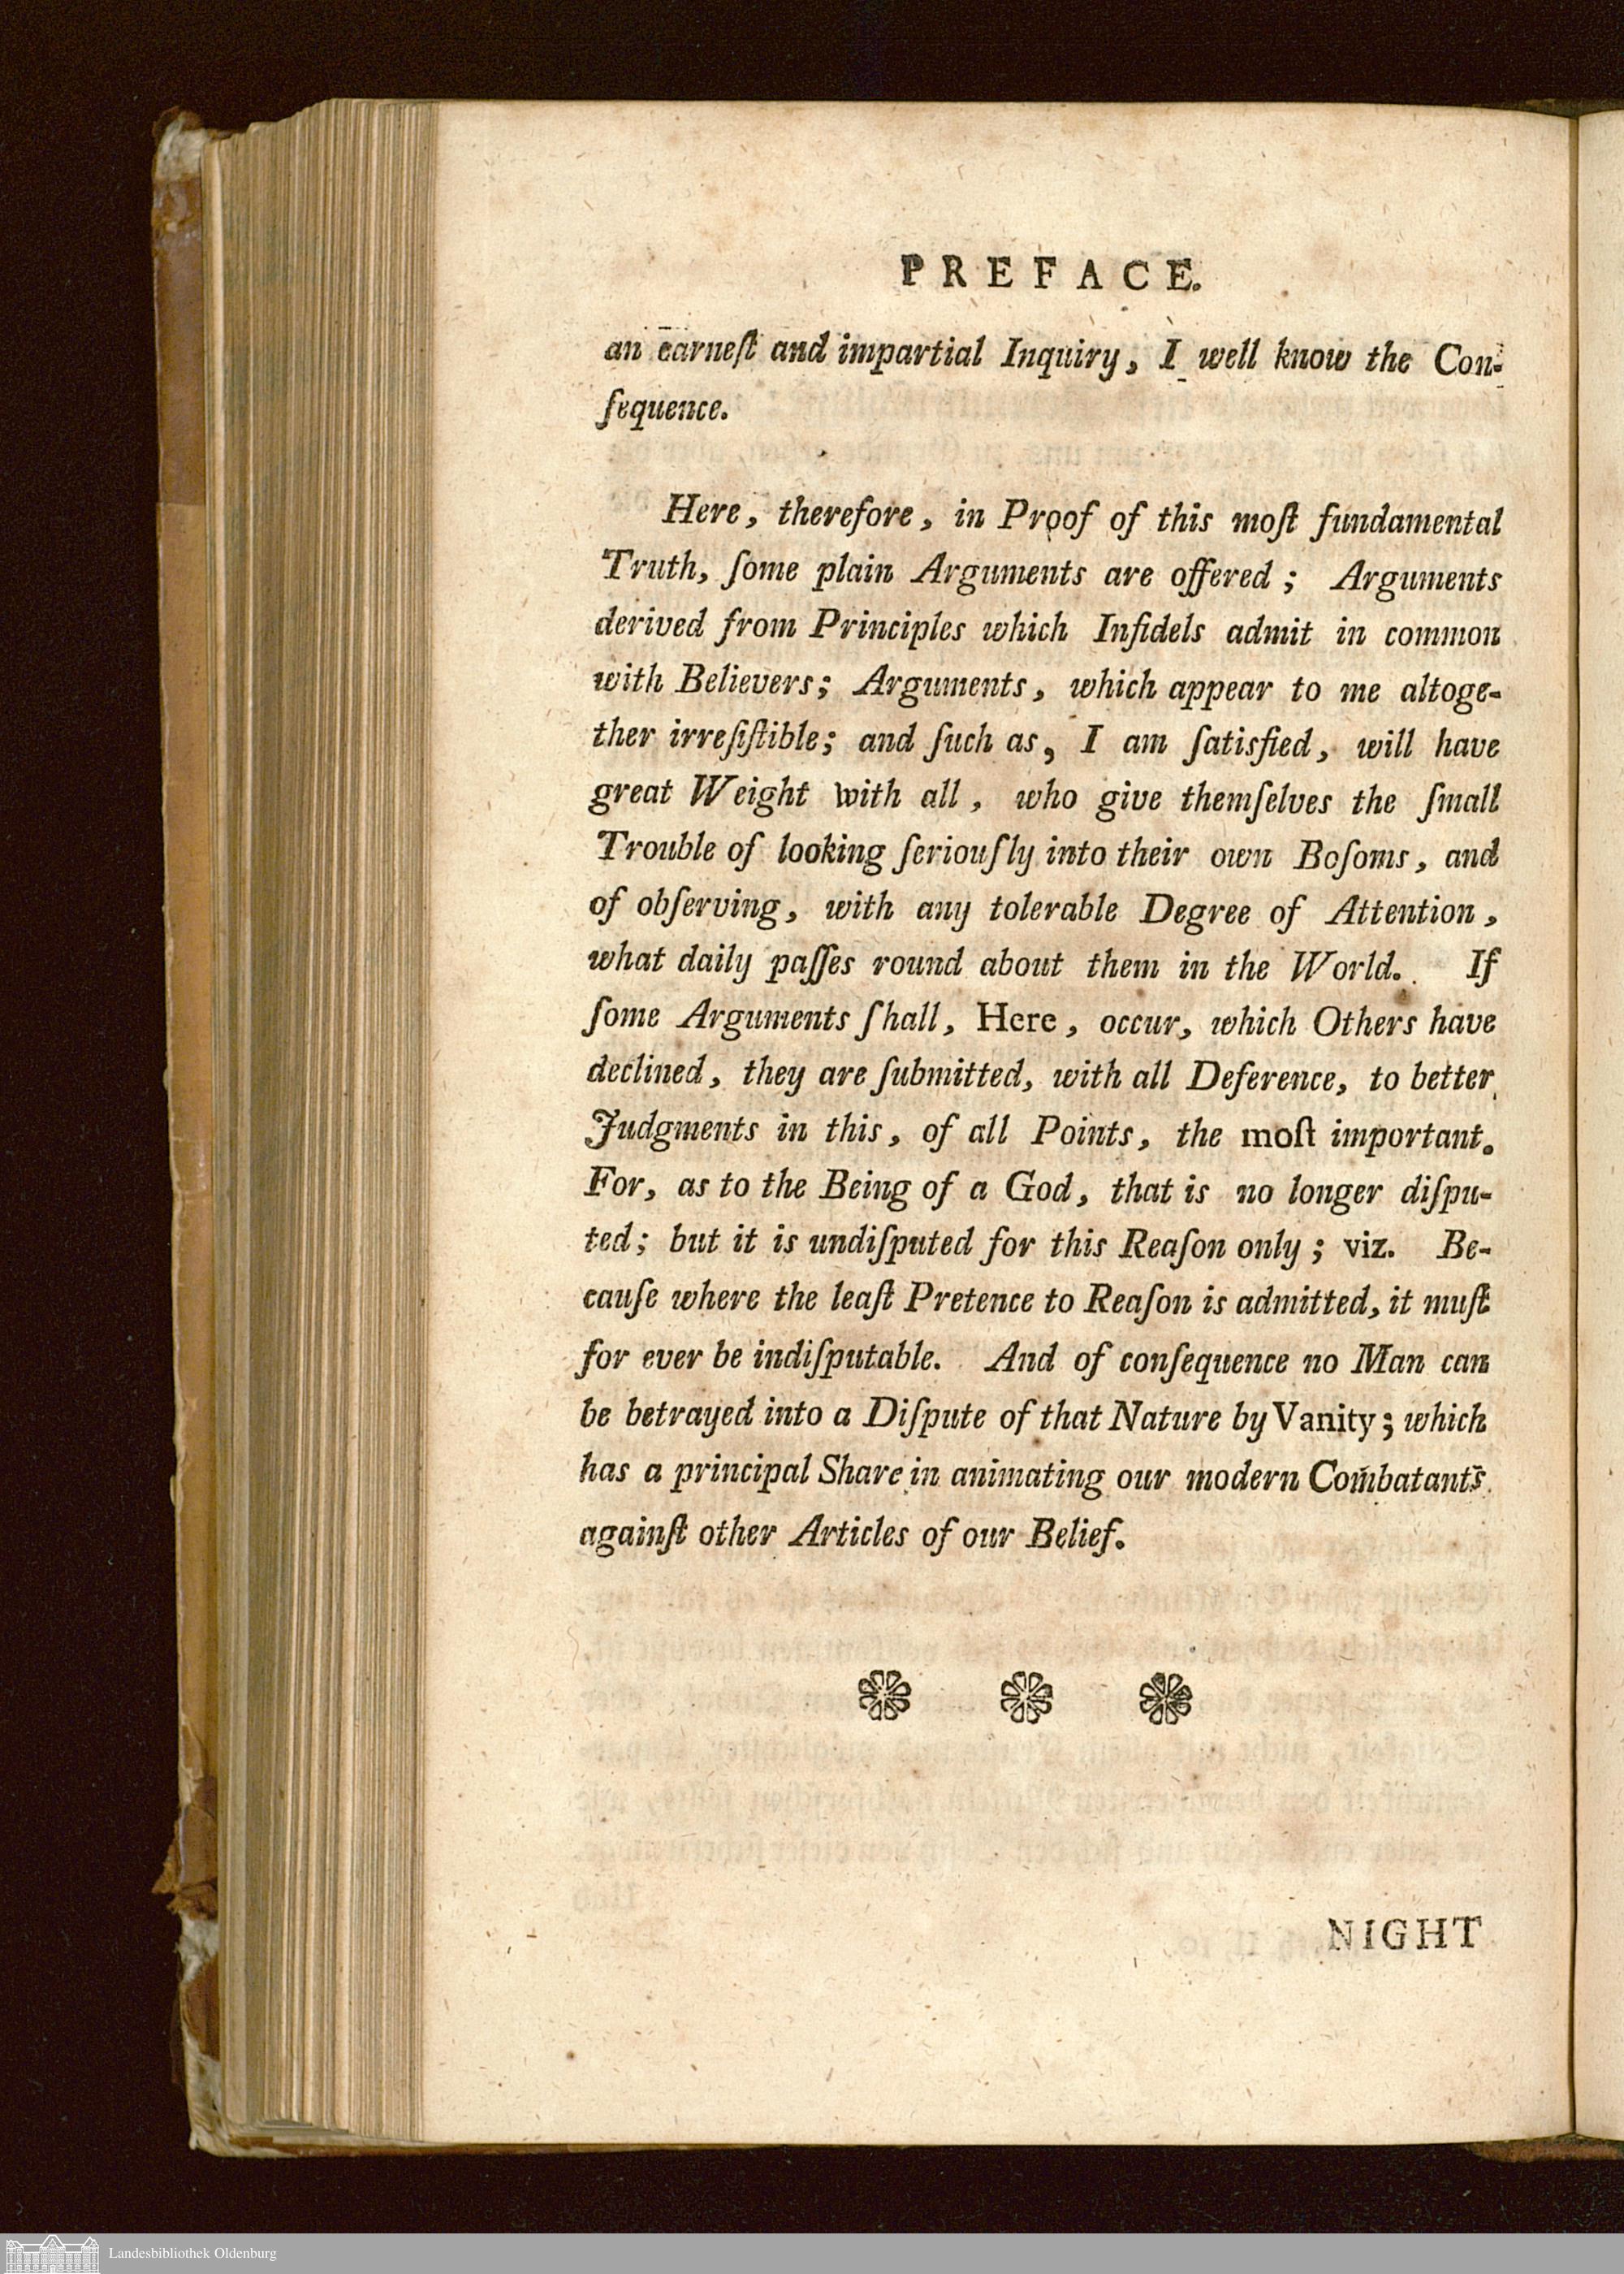 PREFACE.
an earneſt and impartial Inquiry, I well know the Con-
ſequence.
Here, therefore, in Proof of this moſt fundamental
Truth, ſome plain Arguments are offered; Arguments
derived from Principles which Infidels admit in common
with Believers; Arguments, which appear to me altoge-
ther irreſiſtible; and ſuch as, I am ſatisfied, will have
great Weight with all, who give themſelves the ſmall
Trouble of looking ſeriouſly into their own Boſoms, and
of obſerving, with any tolerable Degree of Attention,
what daily paſſes round about them in the World. If
ſome Arguments ſhall, Here, occur, which Others have
declined, they are ſubmitted, with all Deference, to better
Judgments in this, of all Points, the moſt important.
For, as to the Being of a God, that is no longer diſpu-
ted; but it is undiſputed for this Reaſon only; viz. Be-
cauſe where the leaſt Pretence to Reaſon is admitted, it muſt
for ever be indiſputable. And of conſequence no Man can
be betrayed into a Diſpute of that Nature by Vanity; which
has a principal Share in animating our modern Combatants
againſt other Articles of our Belief.
NIGHT
Landesbibliothek Oldenburg